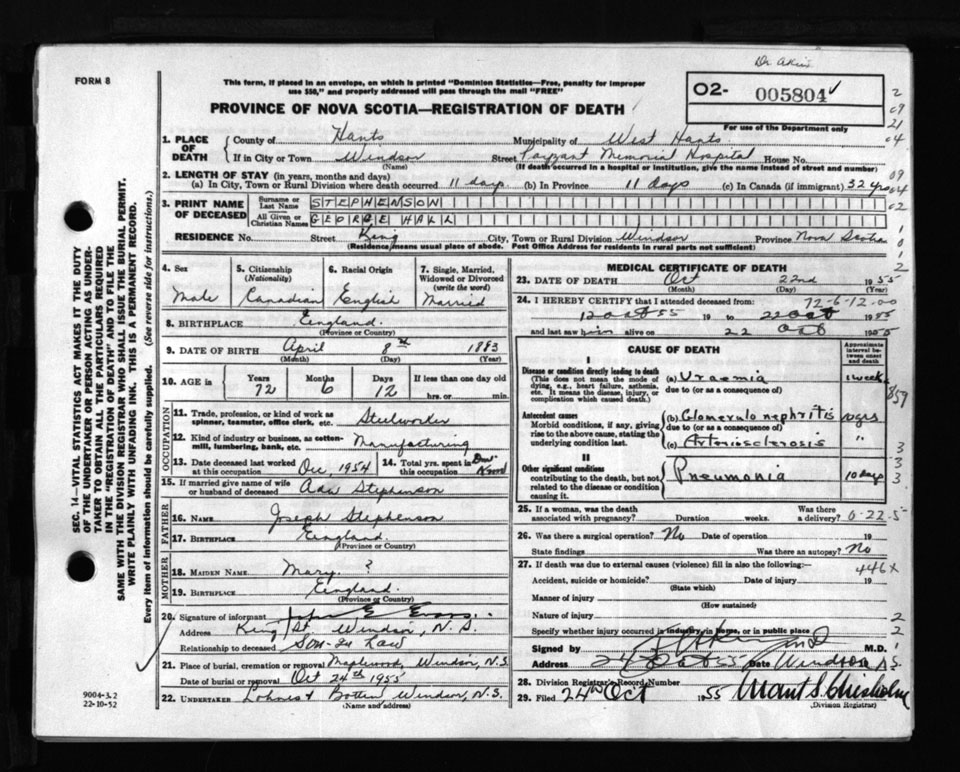 Dr. Akins
FORM 8
This form, if placed in an envelope, on which is printed "Dominion Statistics—Free, penalty for improper
use $50," and properly addressed will pass through the mail "FREE"
O2- 005804
PROVINCE OF NOVA SCOTIA—REGISTRATION OF DEATH
For use of the Department only
1. PLACE OF DEATH
County of Hants Municipality of West Hants
If in City or Town Windsor Street Payzant Memorial Hospital House No.
(Name) (If death occurred in institution, give the name instead of street and number)
2. LENGTH OF STAY (in years, months and days)
(a) In City, Town or Rural Division where death occurred 11 days. (b) In Province 11 days (c) In Canada (if immigrant) 32 yrs
3. PRINT NAME OF DECEASED
Surname or Last Name STEPHENSON
All Given or Christian Names GEORGE HALL
RESIDENCE No. Street King City, Town or Rural Division Windsor Province Nova Scotia
(Residence means usual place of abode. Post Office Address for residents in rural parts not sufficient)
4. Sex
Male
5. Citizenship (Nationality)
Canadian
6. Racial Origin
English
7. Single, Married, Widowed or Divorced (write the word)
Married
8. BIRTHPLACE England
(Province or Country)
9. DATE OF BIRTH April 8th 1883
(Month) (Day) (Year)
10. AGE in
Years Months Days If less than one day old
72 6 12 hrs. or min.
OCCUPATION
11. Trade, profession, or kind of work as spinner, teamster, office clerk, etc. Steelworker
12. Kind of industry or business, as cotton-mill, lumbering, bank, etc. Manufacturing
13. Date deceased last worked at this occupation Dec 1954
14. Total yrs. spent in this occupation Don't Know
15. If married give name of wife or husband of deceased Ada Stephenson
FATHER
16. NAME Joseph Stephenson
17. BIRTHPLACE England
(Province or Country)
MOTHER
18. MAIDEN NAME Mary ?
19. BIRTHPLACE England
(Province or Country)
20. Signature of informant John E Evans.
Address King St. Windsor, N.S.
Relationship to deceased Son-in Law
21. Place of burial, cremation or removal Maplewood, Windsor, N.S.
Date of burial or removal Oct 24th 1955
22. UNDERTAKER Windsor, N.S.
(Name and address)
MEDICAL CERTIFICATE OF DEATH
23. DATE OF DEATH Oct 22nd 1955
(Month) (Day) (Year)
72-6-12-00
24. I HEREBY CERTIFY that I attended deceased from
12 Oct 55 19 to 22 Oct 1955
and last saw him alive on 22 Oct 1955
CAUSE OF DEATH
Approximate interval between onset and death
I
Disease or condition directly leading to death
(This does not mean the mode of dying, e.g., heart failure, asthenia, etc. It means the disease, injury, or complication which caused death.)
(a) Uraemia 1 week
due to (or as a consequence of)
Antecedent causes
Morbid conditions, if any, giving rise to the above cause, stating the underlying condition last.
(b) Glomerulo nephritis yrs
due to (or as a consequence of)
(c) Arteriosclerosis "
II
Other significant conditions
contributing to the death, but not related to the disease or condition causing it.
Pneumonia 10 days
25. If a woman, was the death associated with pregnancy? Duration weeks. Was there a delivery?
26. Was there a surgical operation? No Date of operation 19
State findings Was there an autopsy? No
27. If death was due to external causes (violence) fill in also the following:
446x
Accident, suicide or homicide? Date of injury 19
(State which)
Manner of injury
(How sustained)
Nature of injury
Specify whether injury occurred in industry, in home, or in public place
Signed by M.D.
Address 24 Oct 55 Date Windsor N.S.
28. Division Registrar's Record Number
29. Filed 24th Oct 1955 Chisholm
(Division Registrar)
SEC. 14—VITAL STATISTICS ACT MAKES IT THE DUTY
OF THE UNDERTAKER OR PERSON ACTING AS UNDER-
TAKER TO OBTAIN ALL THE PARTICULARS REQUIRED
IN THE "REGISTRATION OF DEATH" AND TO FILE THE
SAME WITH THE DIVISION REGISTRAR WHO SHALL ISSUE THE BURIAL PERMIT.
WRITE PLAINLY WITH UNFADING INK. THIS IS A PERMANENT RECORD.
Every item of information should be carefully supplied. (See reverse side for instructions.)
9004-3.2
22-10-52